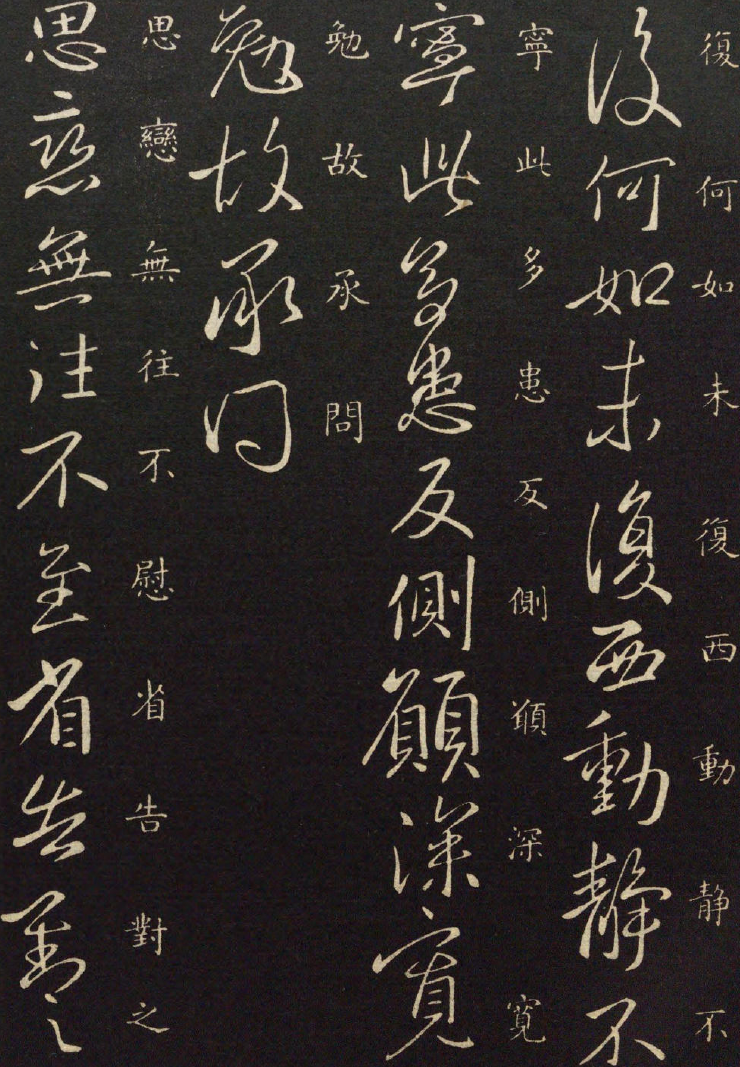 復何如未復西動静不
復何如未復西動静不
寧此多患反側願深寬
寧此多患反側願深寬
勉故承問
勉故承問
思戀無往不慰省告對之
思戀無往不至省告對之